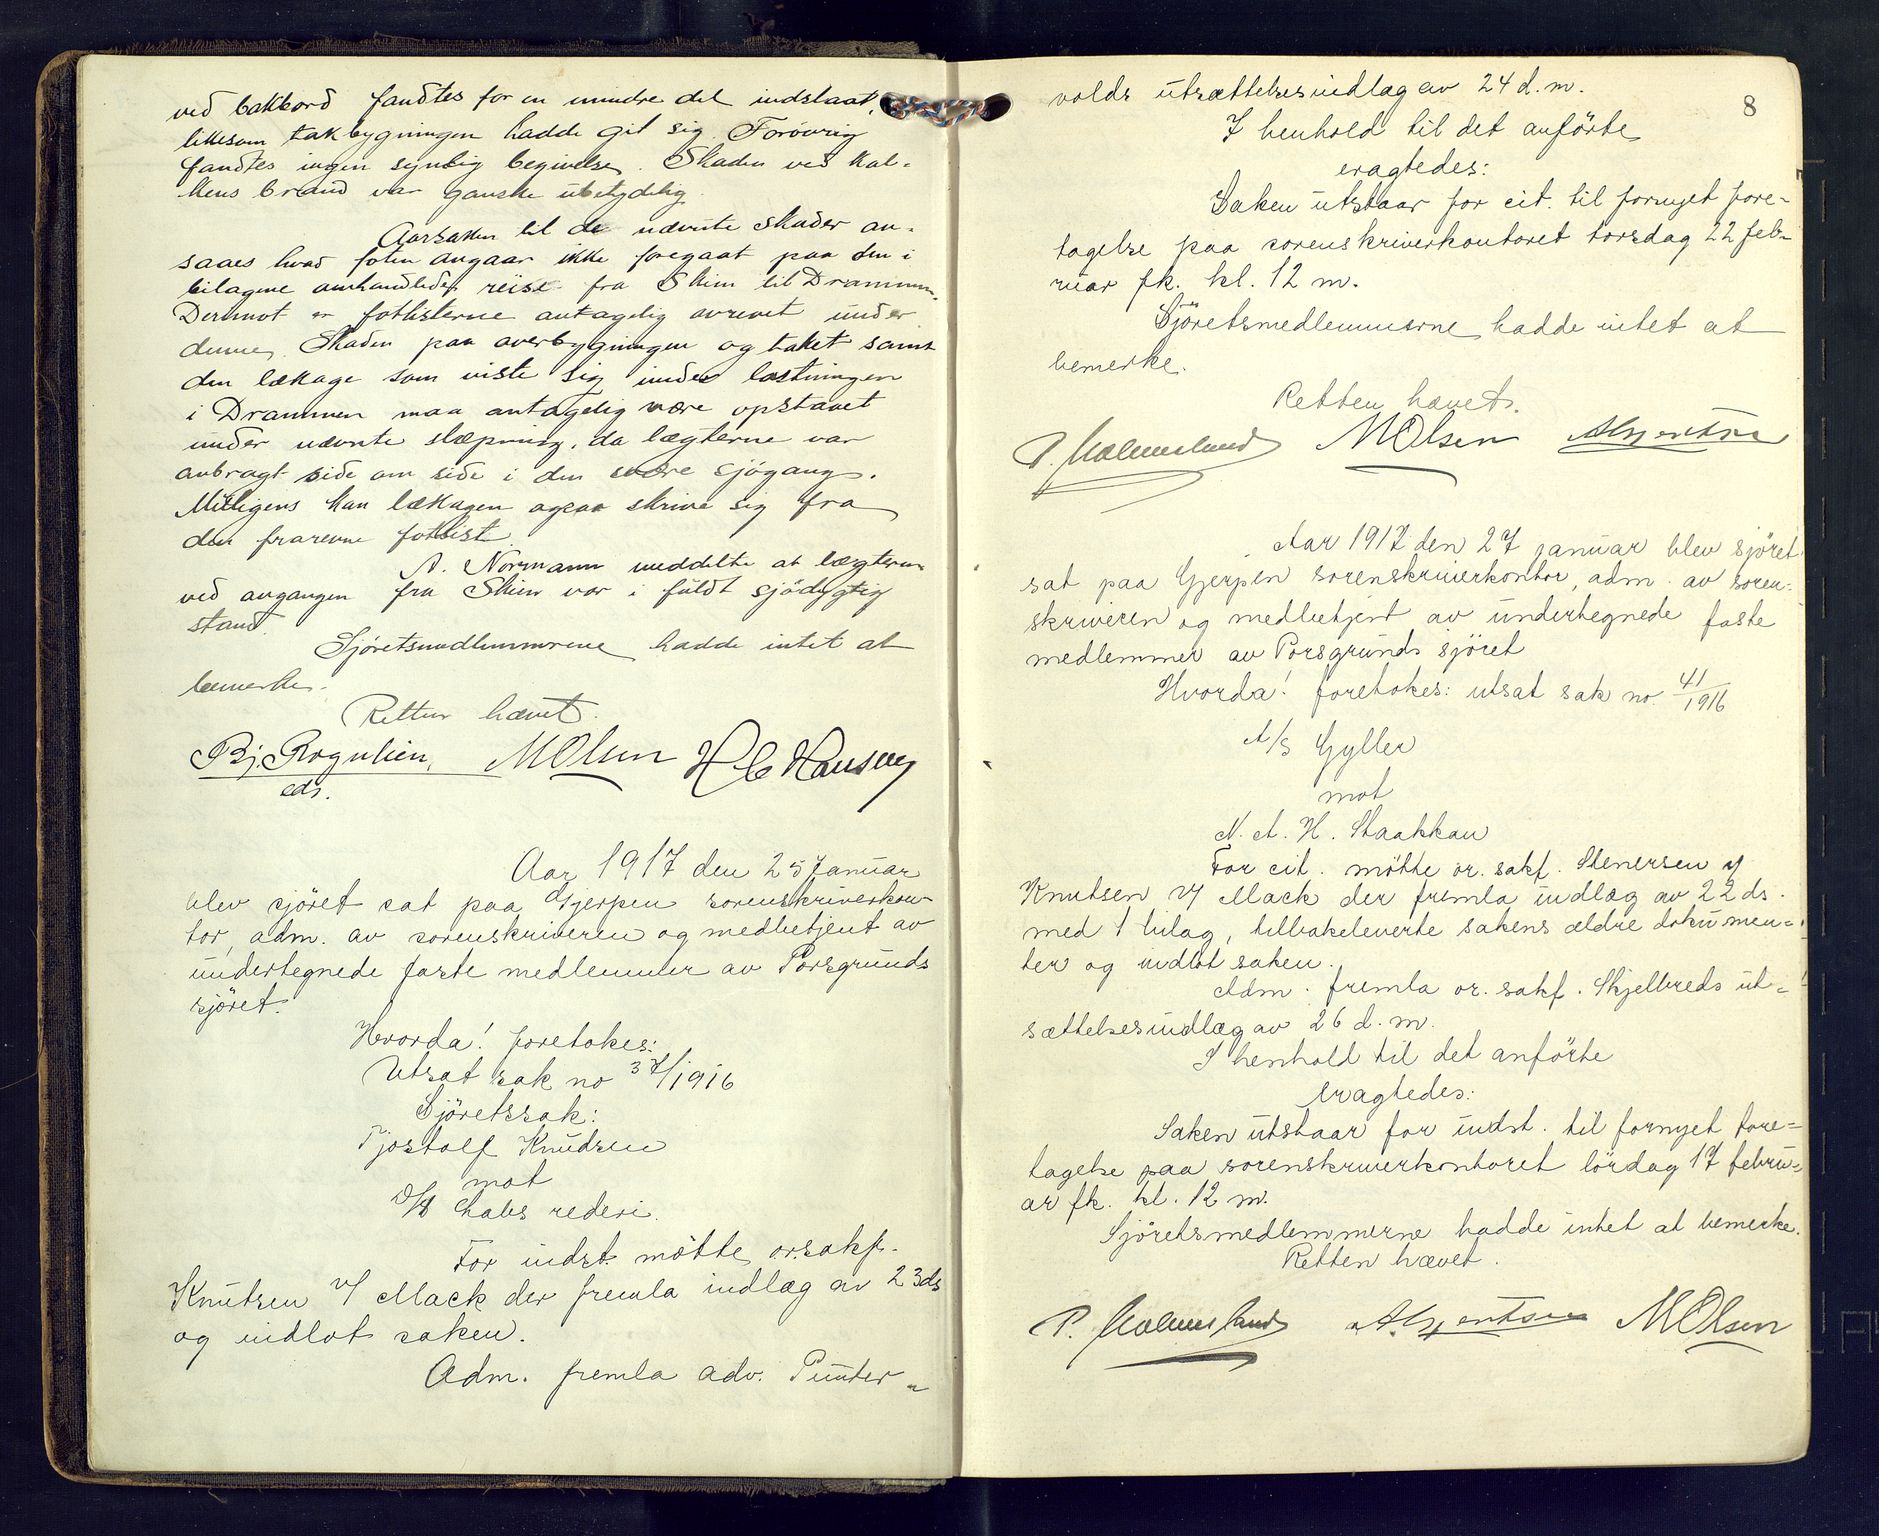 ved bakbord fandtes for en mindre del indslaat,
likesom takbygningen hadde git sig. Forøvrig
fandtes ingen synlig begivelse. Skaden ved kal-
kens brand var ganske ubetydelig.
Aarsaken til de nævnte skader an-
saaes hvad foten angaar ikke foregaat paa den i
bilagene omhandlede reise fra Skien til Drammen.
Derimot er fotlisterne antagelig avrevet under
denne. Skaden paa overbygningen og taket samt
den lækage som viste sig under lastningen
i Drammen maa antagelig være opstaaet
under nævnte slæpning, da lægterne var
anbragt side om side i den svære sjøgang.
Muligens kan lækagen ogsaa skrive sig fra
den frarevne fotlist.
A. Normann meddelte at lægteren
ved avgangen fra Skien var i fuldt sjödygtig
stand.
Sjøretsmedlemmerne hadde intet at
bemerke.
Retten hævet.
Bj. Rognlien, MOlsen H C Hansen
eds.
Aar 1917 den 25 Januar
blev sjöret sat paa Gjerpen sorenskriverkon-
tor, adm. av sorenskriveren og medbetjent av
undertegnede faste medlemmer av Porsgrunds
sjöret.
Hvorda! foretokes:
Utsat sak no 37/1916
Sjöretssak:
Tjostolf Knudsen
mot
D/S rederi.
For indst. mötte or.sakf.
Knutsen v/ Mack der fremla indlæg av 23 ds
og indlot saken.
Adm. fremla adv. Punter-
8
volds utsættelsesindlæg av 24 d. m.
I henhold til det anförte
eragtedes:
Saken utstaar for cit. til fornyet fore-
tagelse paa sorenskriverkontoret torsdag 22 feb-
ruar fk. kl. 12 m.
Sjöretsmedlemmerne hadde intet at
bemerke.
Retten hævet.
P. MOlsen
Aar 1917 den 27 januar blev sjöret
sat paa Gjerpen sorenskriverkontor, adm. av soren-
skriveren og medbetjent av undertegnede faste
medlemmer av Porsgrunds sjöret
Hvorda! foretokes: utsat sak no. 41/1916
A/S Gyller
mot
N. A. H. Staakkan
For cit. mötte or. sakf. Stenersen v/
Knutsen v/ Mack der fremla indlæg av 22 ds.
med 1 bilag, tilbakeleverte sakens ældre dokumen-
ter og indlot saken.
Adm. fremla or. sakf. Skjelbreds ut-
sættelsesindlæg av 26 d. m.
I henhold til det anförte
eragtedes:
Saken utstaar for indst. til fornyet fore-
tagelse paa sorenskriverkontoret lördag 17 febru-
ar fk. kl. 12 m.
Sjöretsmedlemmerne hadde intet at bemerke.
Retten hævet.
P. MOlsen